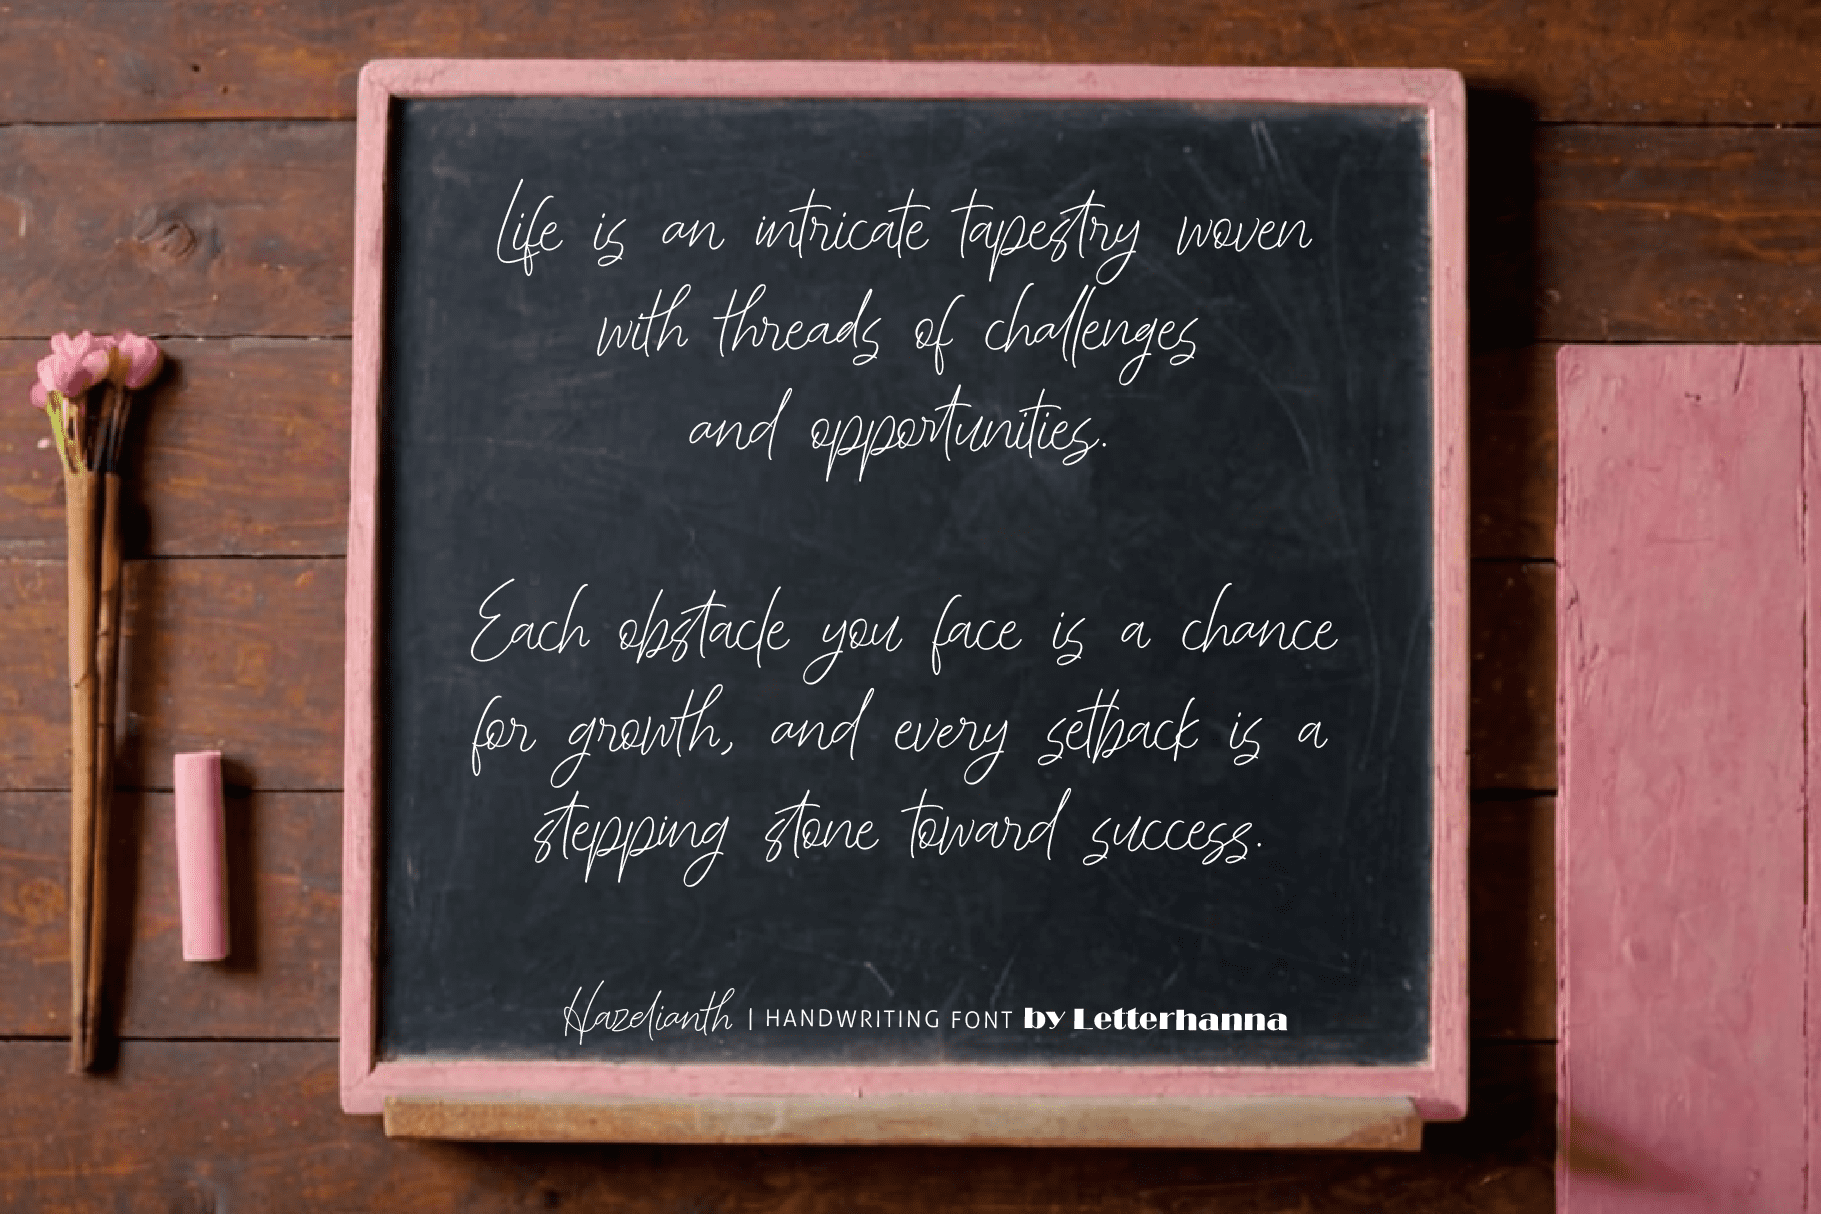 Life is an intricate tapestry woven
with threads of challenges
and opportunities.
Each obstacle you face is a chance
for growth, and every setback is a
stepping stone toward success.
Hazelianth | HANDWRITING FONT by Letterhanna